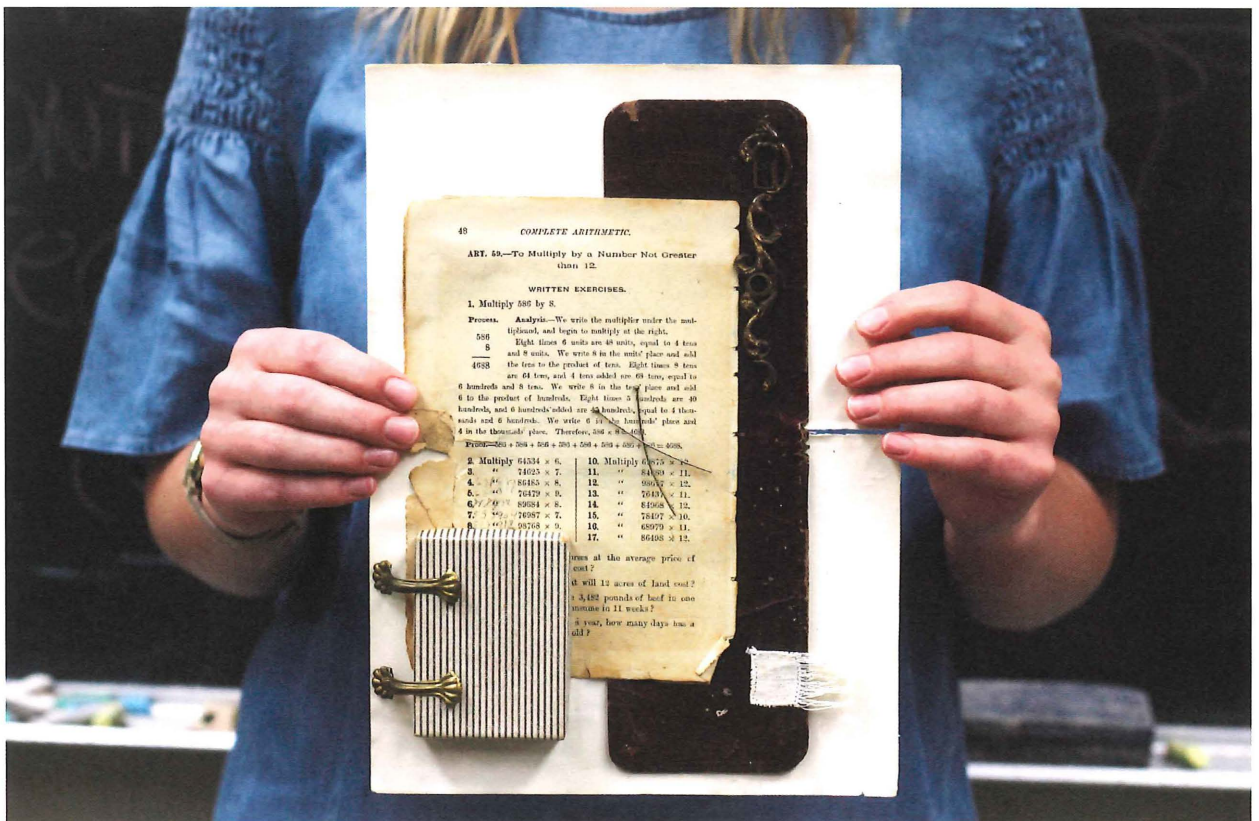 48 COMPLETE ARITHMETIC.
ART. 59.—To Multiply by a Number Not Greater
than 12.
WRITTEN EXERCISES.
1. Multiply 586 by 8.
Process. Analysis.—We write the multiplier under the mul-
tiplicand, and begin to multiply at the right.
586 Eight times 6 units are 48 units, equal to 4 tens
8 and 8 units. We write 8 in the units' place and add
4688 the tens to the product of tens. Eight times 8 tens
are 64 tens, and 4 tens added are 68 tens, equal to
6 hundreds and 8 tens. We write 8 in the tens' place and add
6 to the product of hundreds. Eight times 5 hundreds are 40
hundreds, and 6 hundreds added are hundreds, equal to 4 thou-
sands and 6 hundreds. We write 6 in the hundreds' place and
4 in the thousands' place. Therefore, 586 × 8 =
Proof.—586 + 586 + 586 + 586 + 586 + 586 + 586 + = 4688.
2. Multiply 64534 × 6.
3. " 74625 × 7.
4. " 86485 × 8.
5. " 76479 × 9.
6. " 89684 × 8.
7. " 76987 × 7.
8. " 98768 × 9.
10. Multiply × 12.
11. " × 11.
12. " × 12.
13. " × 11.
14. " 84968 × 12.
15. " 78497 × 10.
16. " 68979 × 11.
17. " 86498 × 12.
at the average price of
cost?
will 12 acres of land cost?
3,482 pounds of beef in one
in 11 weeks?
year, how many days has a
old?